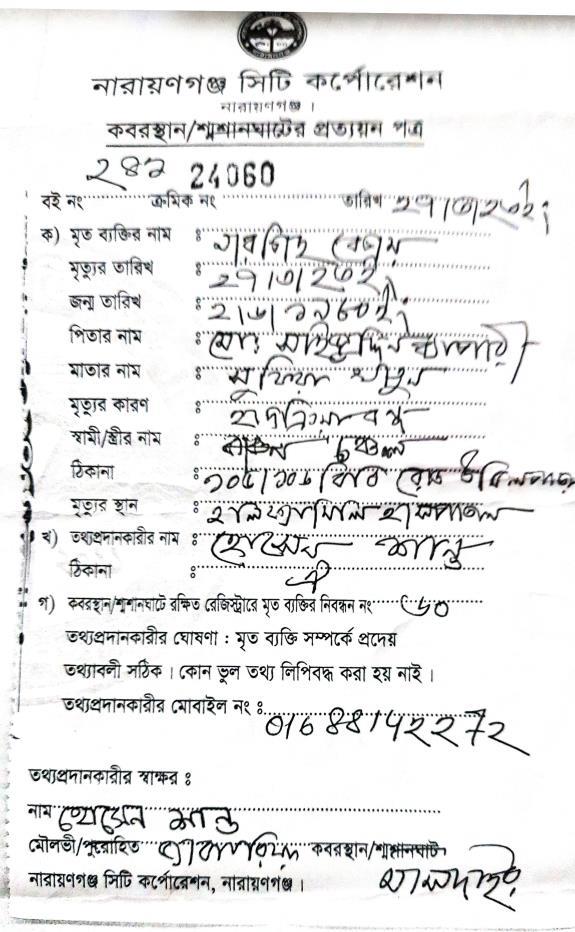 নারায়ণগঞ্জ সিটি কর্পোরেশন
নারায়ণগঞ্জ ।
কবরস্থান/শ্মশানঘাটের প্রত্যয়ন পত্র
২৪৯ 24060
বই নং ক্রমিক নং তারিখ ২৭/৩/২০২১
ক) মৃত ব্যক্তির নাম ঃ বেগম
মৃত্যুর তারিখ ঃ ২৭/৩/২০২১
জন্ম তারিখ ঃ
পিতার নাম ঃ মোঃ ব্যাপারী
মাতার নাম ঃ সুফিয়া খাতুন
মৃত্যুর কারণ ঃ হৃদক্রিয়া বন্ধ
স্বামী/স্ত্রীর নাম ঃ
ঠিকানা ঃ ১০৫/১০৬ বিবি রোড
মৃত্যুর স্থান ঃ হলিফ্যামিলি হাসপাতাল
খ) তথ্যপ্রদানকারীর নাম ঃ হোসেন শান্ত
ঠিকানা ঃ ঐ
গ) কবরস্থান/শ্মশানঘাটে রক্ষিত রেজিস্ট্রারে মৃত ব্যক্তির নিবন্ধন নং ৬০
তথ্যপ্রদানকারীর ঘোষণা : মৃত ব্যক্তি সম্পর্কে প্রদেয়
তথ্যাবলী সঠিক । কোন ভুল তথ্য লিপিবদ্ধ করা হয় নাই ।
তথ্যপ্রদানকারীর মোবাইল নং ঃ 01688142272
তথ্যপ্রদানকারীর স্বাক্ষর ঃ
নাম হোসেন শান্ত
মৌলভী/পুরোহিত কবরস্থান/শ্মশানঘাট
নারায়ণগঞ্জ সিটি কর্পোরেশন, নারায়ণগঞ্জ । মাসদাইর